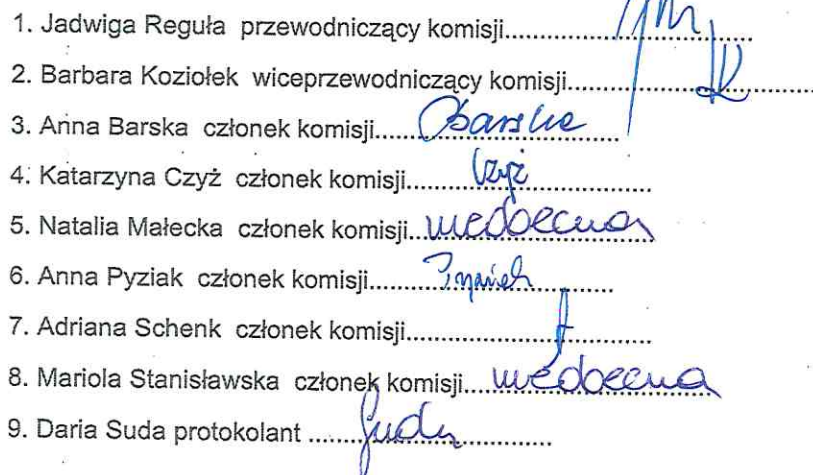 1. Jadwiga Reguła przewodniczący komisji..............................
2. Barbara Koziołek wiceprzewodniczący komisji..............................
3. Anna Barska członek komisji......Barska......
4. Katarzyna Czyż członek komisji.........Czyż...............
5. Natalia Małecka członek komisji..nieobecna
6. Anna Pyziak członek komisji......Pyziak.........
7. Adriana Schenk członek komisji..............................
8. Mariola Stanisławska członek komisji....nieobecna
9. Daria Suda protokolant ......Suda............